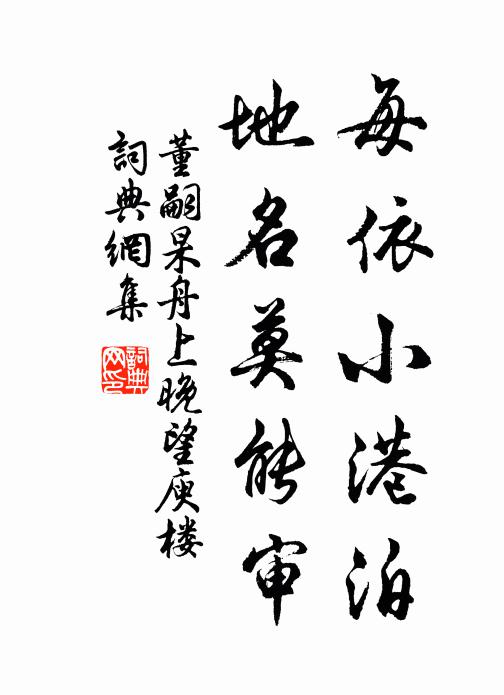 每依小港泊
地名莫能审
董嗣杲舟上晚望庾楼
詞典網集
詞典
网印